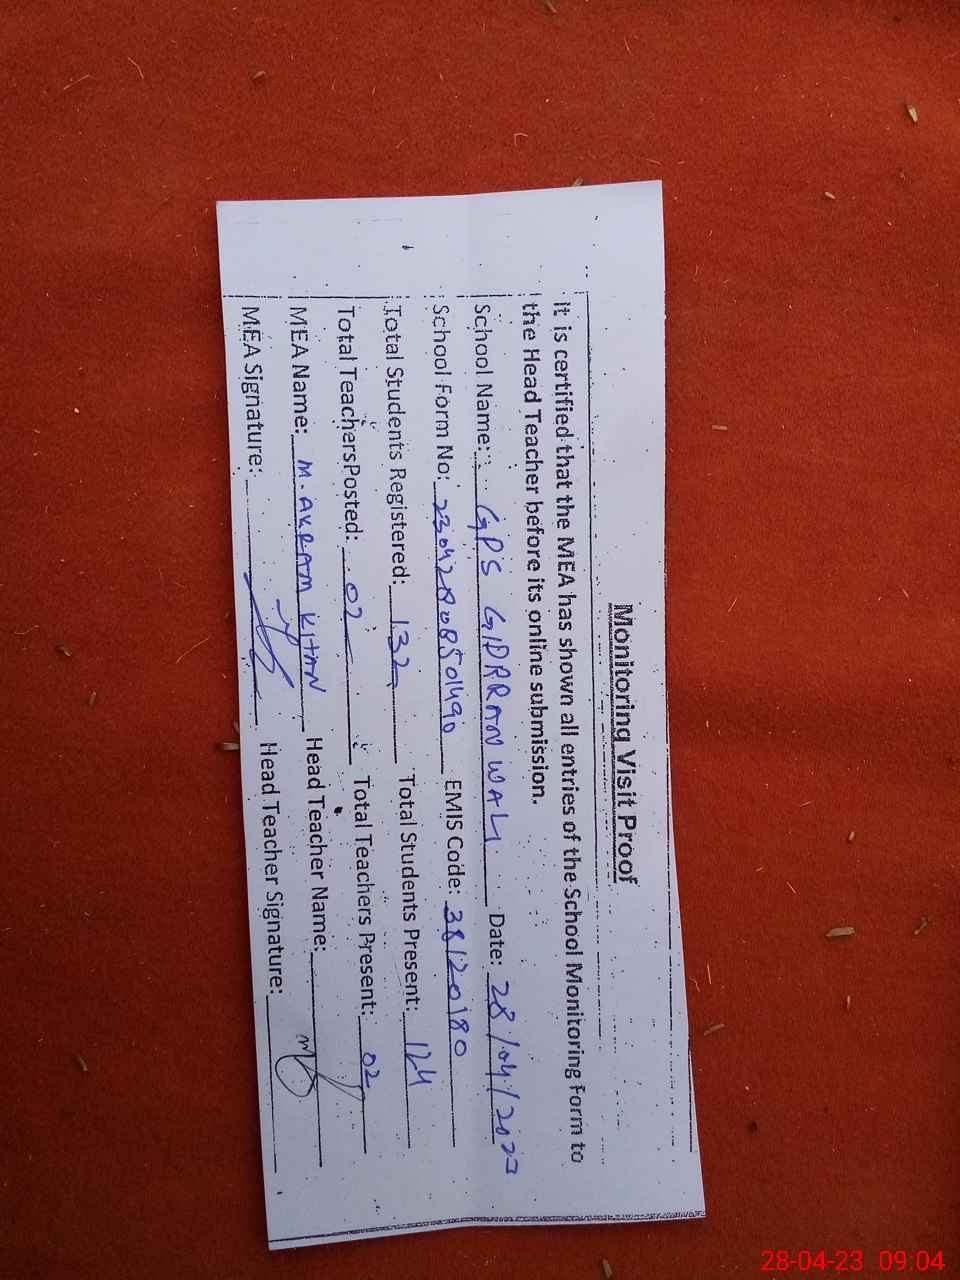 Monitoring Visit Proof
It is certified that the MEA has shown all entries of the School Monitoring Form to
the Head Teacher before its online submission.
School Name: GPS GIDRRANWALI Date: 28/04/2023
School Form No: 230428008501490 EMIS Code: 38120180
Total Students Registered: 132 Total Students Present: 124
Total Teachers Posted: 02 Total Teachers Present: 02
MEA Name: M. AKRAM KHAN Head Teacher Name:
MEA Signature: Head Teacher Signature:
28-04-23 09:04